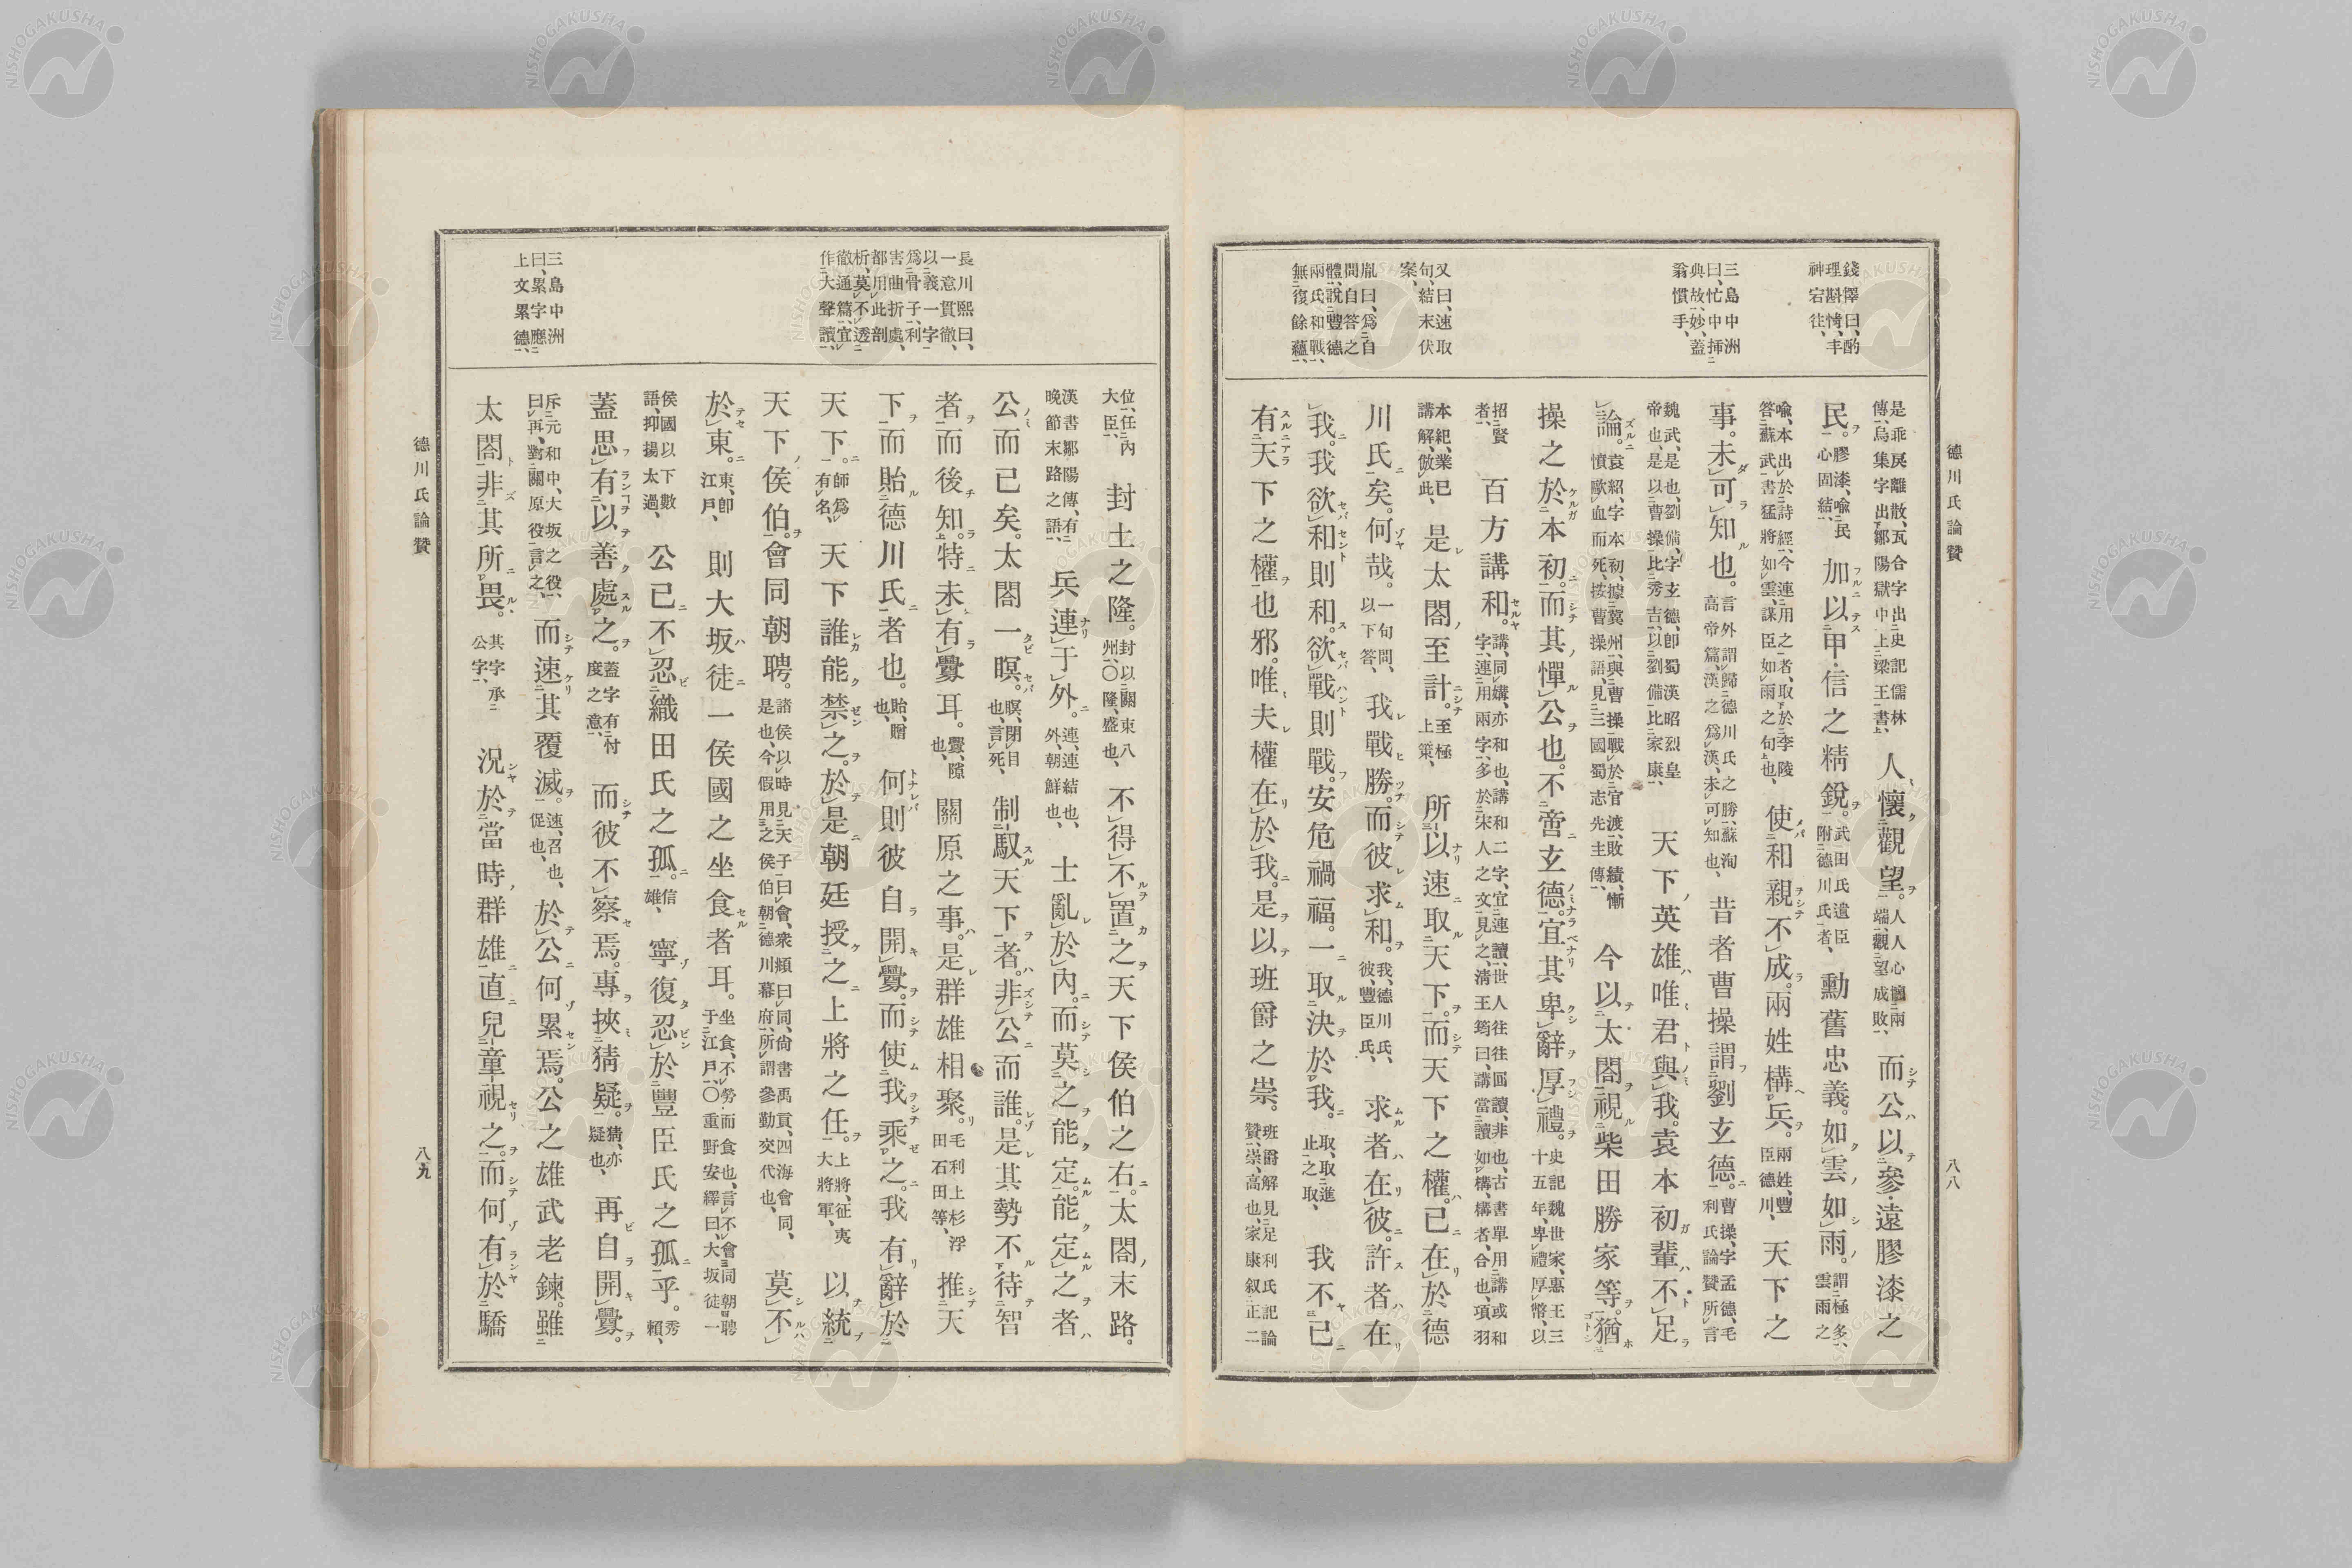 德川氏論贊
八八
錢懌曰、酌
理斟情、丰
神宕往、
三島中洲
曰、忙中揷
典故、妙、蓋
翁慣手、
又曰、速取
句、結末伏
案、
胤曰、爲自
問自答之
體、說豐德
兩氏和戰、
無復餘蘊、
是乖戾離散、瓦合字出史記儒林
傳、烏集字出鄒陽獄中上梁王書、
人懷觀望。
人人心懷兩
端、觀望成敗、
而公以參遠膠漆之
民。
膠漆、喩民
心固結、
加以甲信之精銳。
武田氏遺臣
附德川氏者、
勳舊忠義。如雲如雨。
謂極多、
雲雨之
喩、本出於詩經、今連用之者、取於李陵
答蘇武書猛將如雲、謀臣如雨之句也、
使和親不成。兩姓構兵。
兩姓、豐
臣德川、
天下之
事。未可知也。
言外謂歸德川氏之勝、蘇洵
高帝篇、漢之爲漢、未可知也、
昔者曹操謂劉玄德。
曹操、字孟德、毛
利氏論贊所言
魏武、是也、劉備、字玄德、卽蜀漢昭烈皇
帝也、是以曹操比秀吉、以劉備比家康、
天下英雄唯君與我。袁本初輩不足
論。
袁紹、字本初、據冀州、與曹操戰於官渡、敗績、慚
憤歐血而死、按曹操語、見三國蜀志先主傳、
今以太閤視柴田勝家等。猶
操之於本初。而其憚公也。不啻玄德。宜其卑辭厚禮。
史記魏世家、惠王三
十五年、卑禮厚幣、以
招賢
者、
百方講和。
講、同媾、亦和也、講和二字、宜連讀、世人往往圄讀、非也、古書單用講或和
字、連用兩字、多於宋人之文見之、淸王筠曰、講當讀如構、構者、合也、項羽
本紀、業已
講解、倣此、
是太閤至計。
至極
上策、
所以速取天下。而天下之權。已在於德
川氏矣。何哉。
一句問、
以下答、
我戰勝。而彼求和。
我、德川氏、
彼、豐臣氏、
求者在彼。許者在
我。我欲和則和。欲戰則戰。安危禍福。一取決於我。
取、取進
止之取、
我不已
有天下之權也邪。唯夫權在於我。是以班爵之崇。
班爵解見足利氏記論
贊、崇、高也、家康叙正二
德川氏論贊
八九
長川熙曰、
一意貫徹、
以義一字
爲骨子、利
害曲折處、
都用此剖
析、莫不透
徹通篇、宜
作大聲讀、
三島中洲
曰、累字應
上文累德、
位、任內
大臣、
封土之隆。
封以關東八
州、〇隆、盛也、
不得不置之天下侯伯之右。太閤末路。
漢書鄒陽傳、有
晚節末路之語、
兵連于外。
連、連結也、
外、朝鮮也、
士亂於內。而莫之能定。能定之者
公而已矣。太閤一暝。
暝、閉目
也、言死、
制馭天下者。非公而誰。是其勢不待智
者而後知。特未有釁耳。
釁、隙
也、
關原之事。是群雄相聚。
毛利上杉浮
田石田等、
推天
下而貽德川氏者也。
貽、贈
也、
何則彼自開釁。而使我乘之。我有辭於
天下。
師爲
有名、
天下誰能禁之。於是朝廷授之上將之任。
上將、征夷
大將軍、
以統
天下侯伯。會同朝聘。
諸侯以時見天子曰會、衆頫曰同、尙書禹貢、四海會同、
是也、今假用之侯伯朝德川幕府、所謂參勤交代也、
莫不
於東。
東、卽
江戶、
則大坂徒一侯國之坐食者耳。
坐食、不勞而食也、言不會同朝聘
于江戶、〇重野安繹曰、大坂徒一
侯國以下數
語、抑揚太過、
公已不忍織田氏之孤。
信
雄、
寧復忍於豐臣氏之孤乎。
秀
賴、
蓋思有以善處之。
蓋字有忖
度之意、
而彼不察焉。專挾猜疑。
猜、亦
疑也、
再自開釁。
斥元和中、大坂之役、
曰再、對關原役言之、
而速其覆滅。
速、召也、
促也、
於公何累焉。公之雄武老鍊。雖
太閤非其所畏。
其字承
公字、
況於當時群雄直兒童視之。而何有於驕